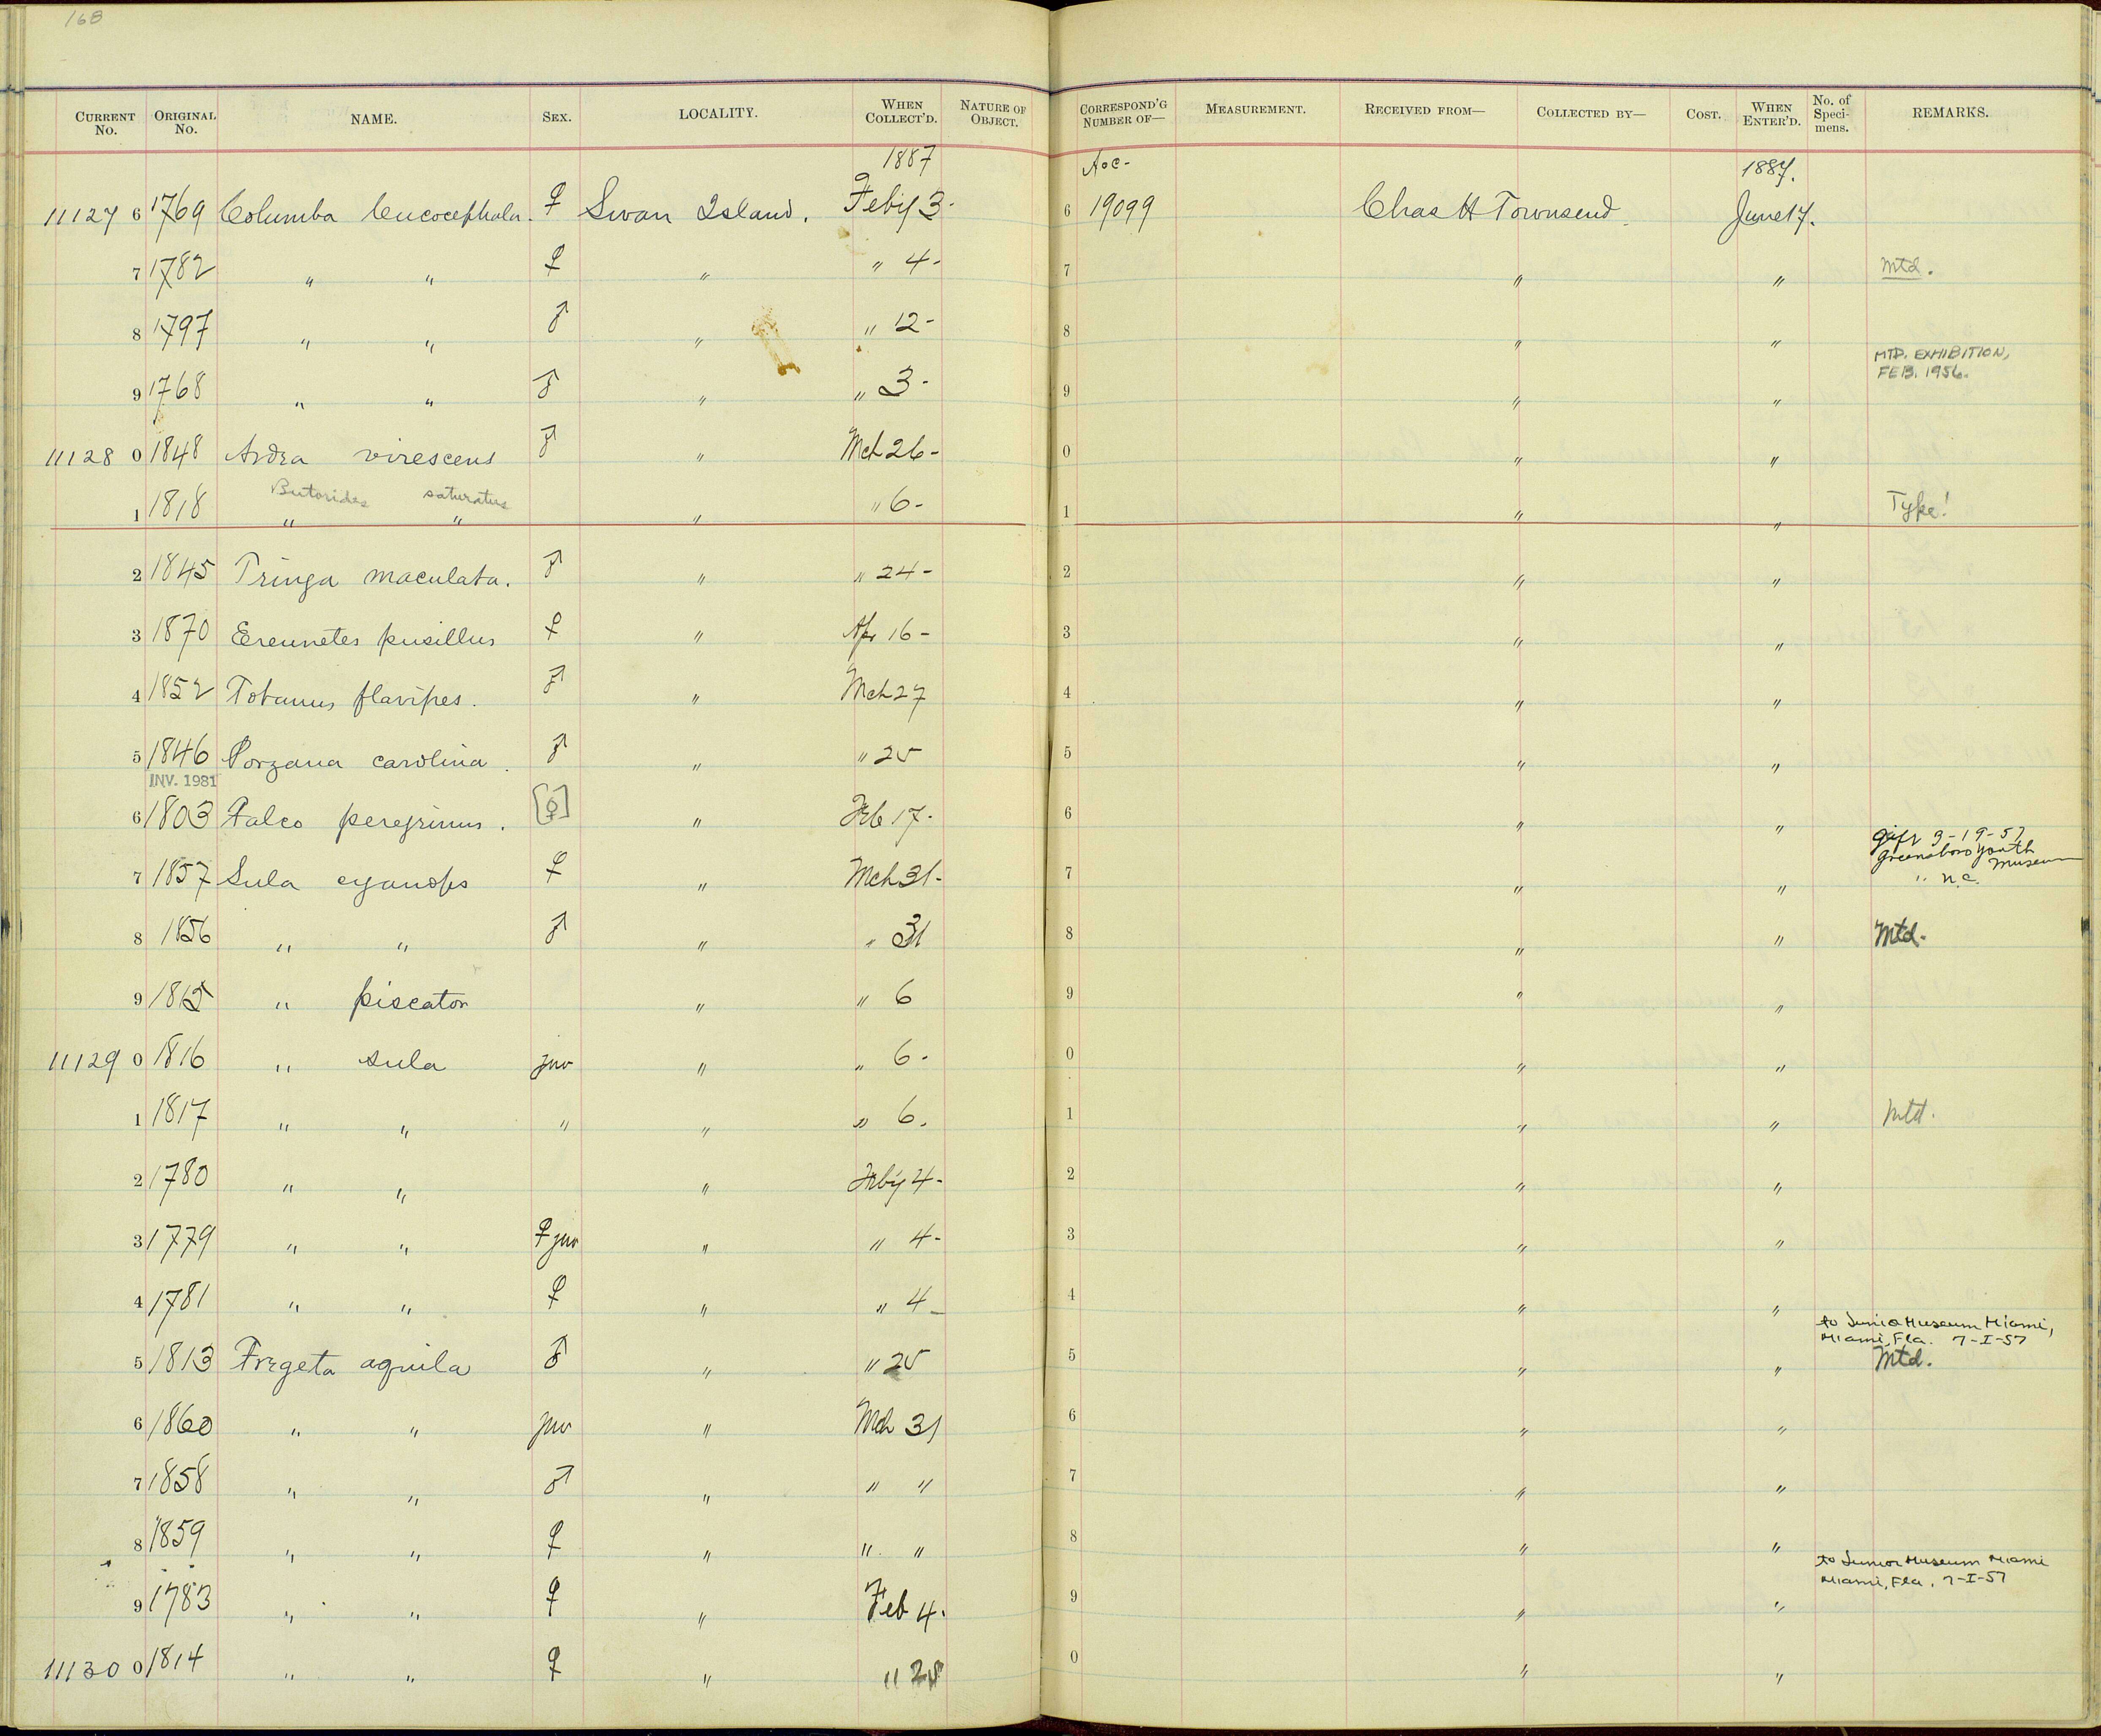 168
CURRENT No. ORIGINAL No. NAME. SEX. LOCALITY. WHEN COLLECT'D. NATURE OF OBJECT. CORRESPOND'G NUMBER OF— MEASUREMENT. RECEIVED FROM— COLLECTED BY— COST. WHEN ENTER'D. No. of Speci-mens. REMARKS.
1887 Acc- 1887.
11127 6 1769 Columba leucocephala. ♀ Swan Island. Feby 3- 6 19099 Chas H Townsend June 17.
7 1782 " " ♀ " " 4- 7 " " Mtd.
8 1797 " " ♂ " " 12- 8 " "
MTD. EXHIBITION,
FEB. 1956.
9 1768 " " ♂ " " 3- 9 " "
11128 0 1848 Ardea virescens ♂ " Mch 26- 0 " "
Butorides saturatus
1 1818 " " " " 6- 1 " " Type!
2 1845 Tringa maculata. ♂ " " 24- 2 " "
3 1870 Ereunetes pusillus ♀ " Apr 16- 3 " "
4 1852 Totanus flavipes. ♂ " Mch 27 4 " "
5 1846 Porzana carolina. ♂ " " 25 5 " "
INV. 1981
6 1803 Falco peregrinus. [♀] " Feb 17- 6 " "
gift 3-19-57
Greensboro Youth
Museum
" N.C.
7 1857 Sula cyanops ♀ " Mch 31- 7 " "
8 1856 " " ♂ " " 31 8 " " Mtd.
9 1815 " piscator " " 6 9 " "
11129 0 1816 " sula juv " " 6- 0 " "
1 1817 " " " " " 6. 1 " " Mtd.
2 1780 " " " Feby 4- 2 " "
3 1779 " " ♀ juv " " 4- 3 " "
4 1781 " " ♀ " " 4- 4 " "
to Junior Museum Miami,
Miami, Fla. 7-I-57
5 1813 Fregeta aquila ♂ " " 25 5 " " Mtd.
6 1860 " " juv " Mch 31 6 " "
7 1858 " " ♂ " " " 7 " "
8 1859 " " ♀ " " " 8 " "
to Junior Museum Miami
Miami, Fla, 7-I-57
9 1783 " " ♀ " Feb 4. 9 " "
11130 0 1814 " " ♀ " " 25 0 " "